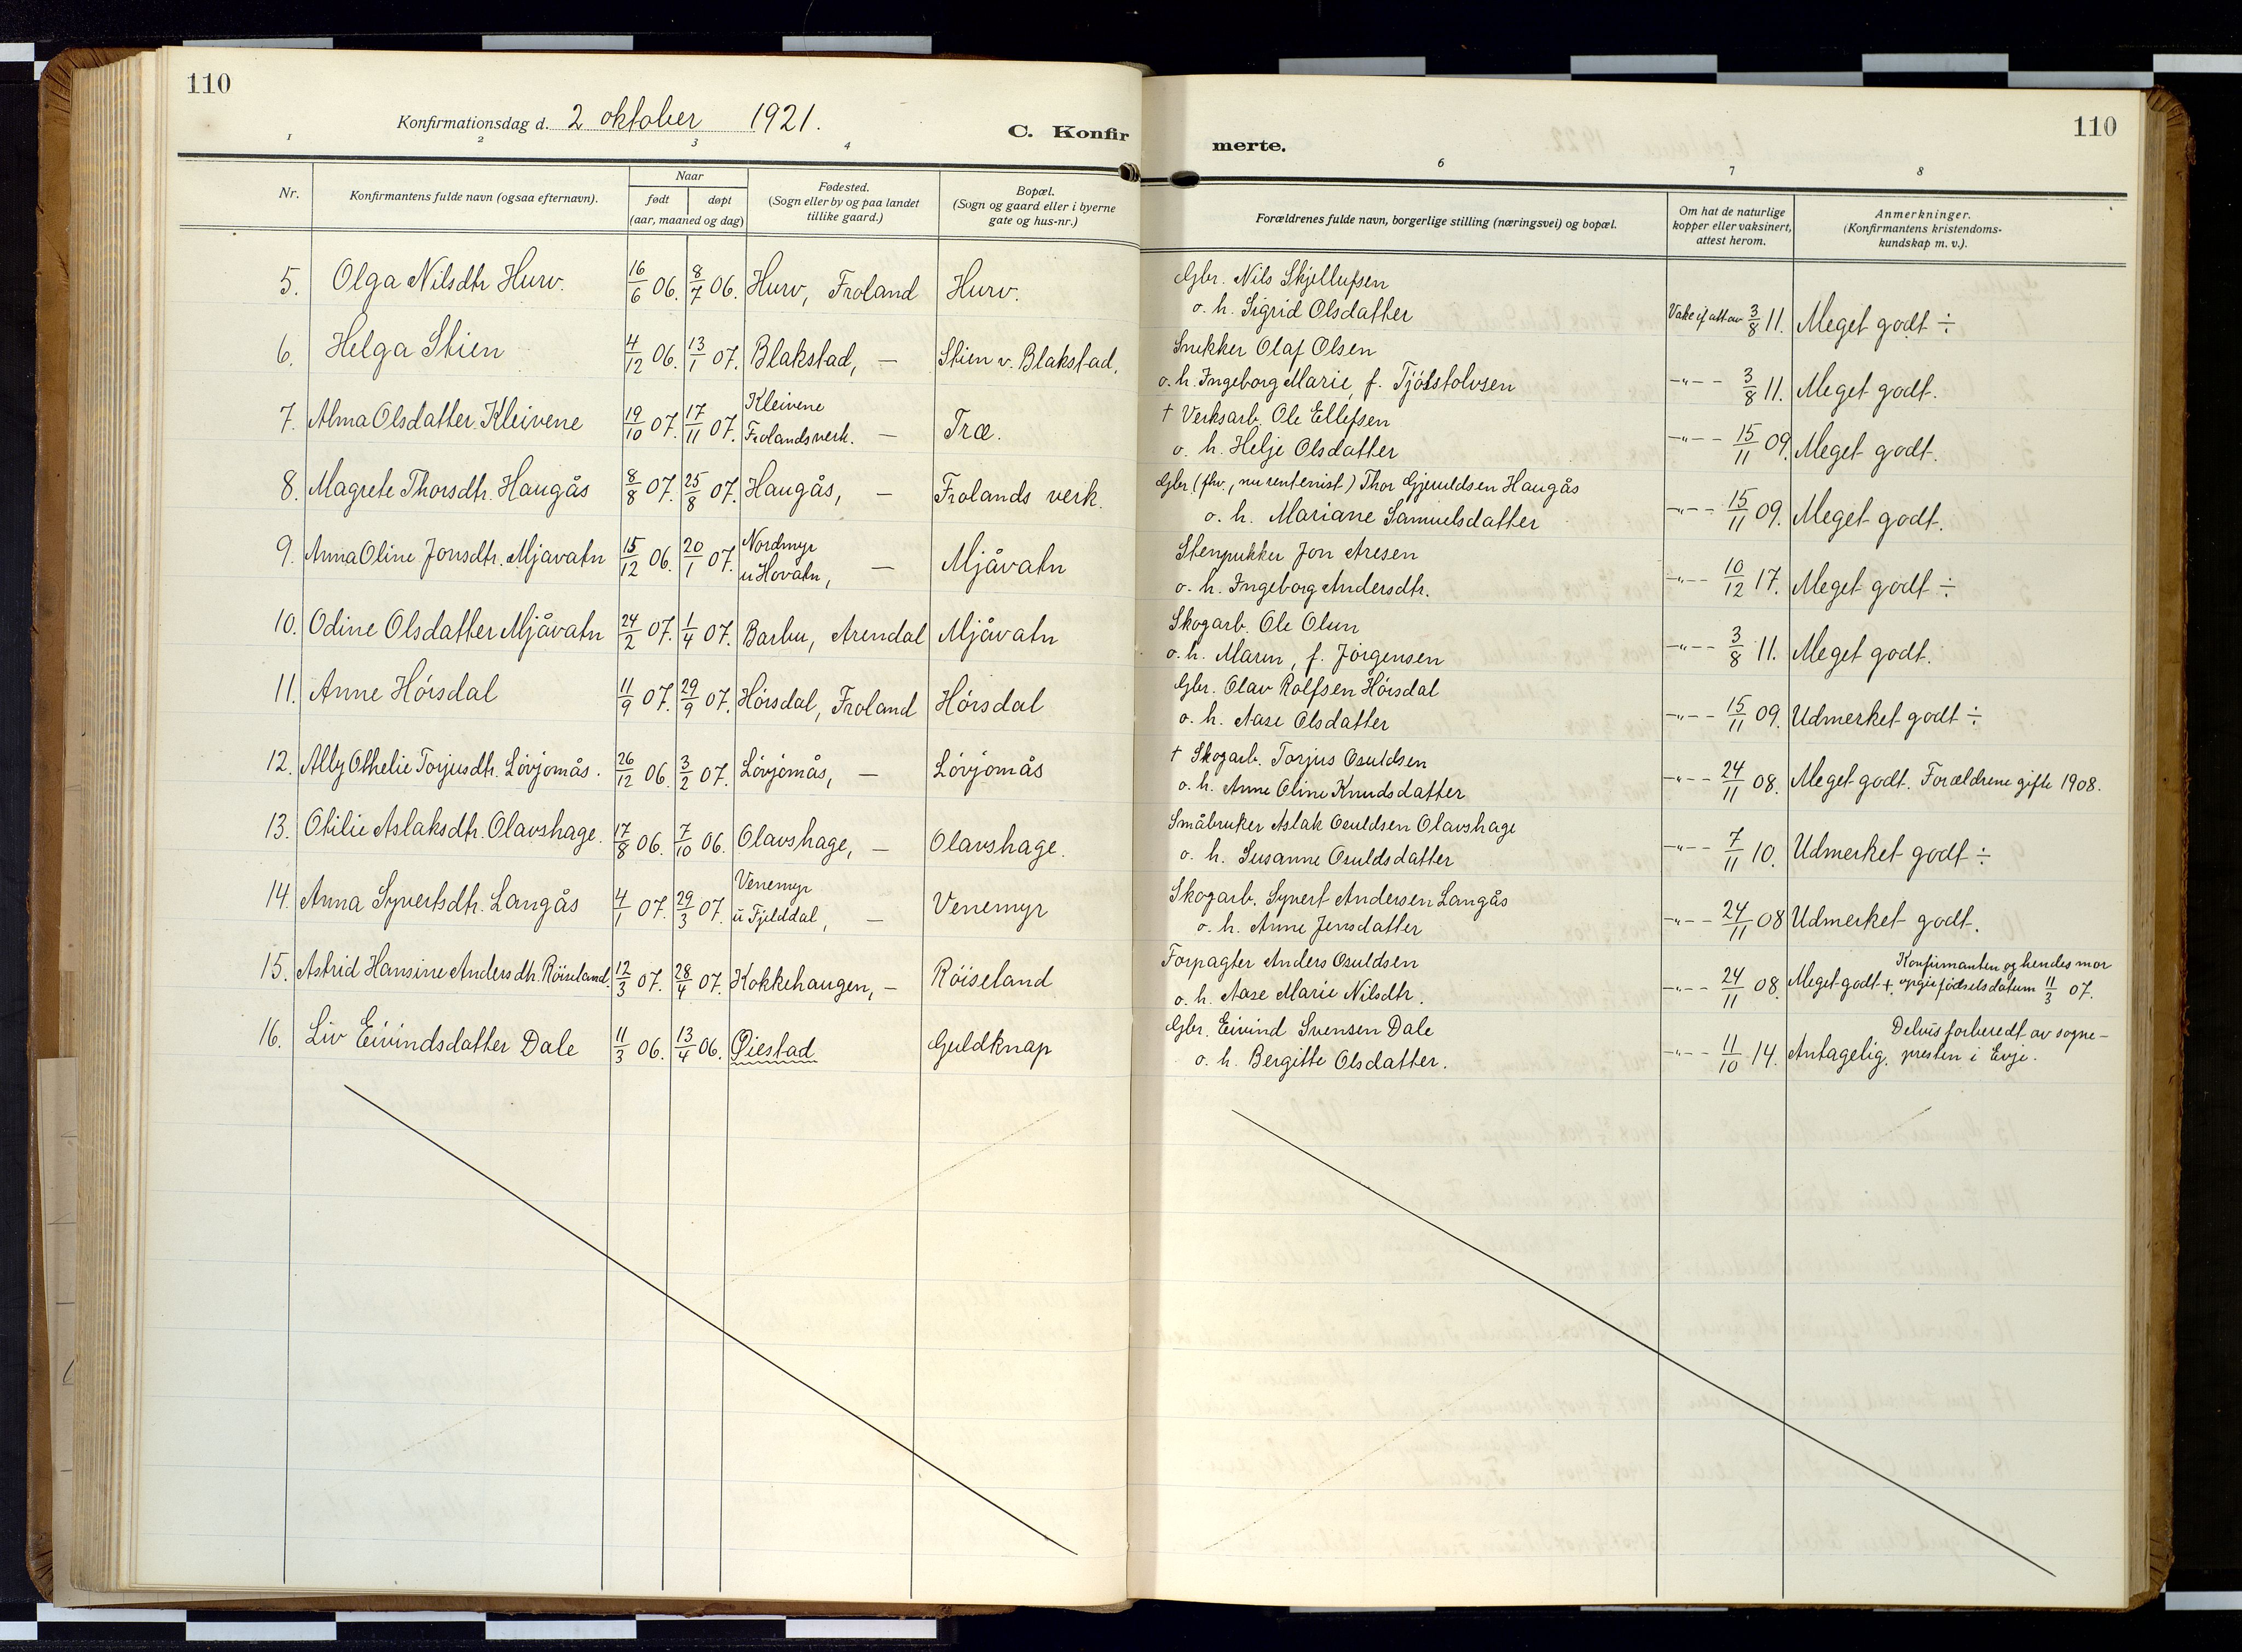 110
Konfirmationsdag d. 2 oktober 1921.
C. Konfir
merte.
110
1 2 3 4
6 7 8
Nr.
Konfirmantens fulde navn (ogsaa efternavn).
Naar
født døpt
(aar, maaned og dag)
Fødested.
(Sogn eller by og paa landet
tillike gaard.)
Bopæl.
(Sogn og gaard eller i byerne
gate og hus-nr.)
Forældrenes fulde navn, borgerlige stilling (næringsvei) og bopæl.
Om hat de naturlige
kopper eller vaksinert,
attest herom.
Anmerkninger.
(Konfirmantens kristendoms-
kundskap m. v.).
5. Olga Nilsdtr Hurv. 16/6 06. 8/7 06. Hurv, Froland Hurv.
Gbr. Nils Skjellufsen
o. h. Sigrid Olsdatter 3/8 11. Meget godt ÷
6. Helga Stien 4/12 06. 13/1 07. Blakstad, — Stien v. Blakstad.
Snekker Olaf Olsen
o. h. Ingeborg Marie, f. Tjóstolvsen -"-- 3/8 11. Meget godt.
7. Alma Olsdatter Kleivene 19/10 07. 17/11 07. Kleivene
Frolandsverk. — Træ.
† Verksarb. Ole Ellefsen
o. h. Helje Olsdatter -"-- 15/11 09. Meget godt.
8. Magrete Thorsdtr. Haugås 8/8 07. 25/8 07. Haugås, — Frolands verk.
Gbr. (fhv., nu rentenist) Thor Gjeruldsen Haugås
o. h. Mariane Samuelsdatter -"-- 15/11 09. Meget godt.
9. Anna Oline Jonsdtr. Mjåvatn 15/12 06. 20/1 07. Nordmyr
u Hovatn, — Mjåvatn
Stenpukker Jon Aresen
o. h. Ingeborg Andersdtr. -"-- 10/12 17. Meget godt ÷
10. Odine Olsdatter Mjåvatn 24/2 07. 1/4 07. Barbu, Arendal Mjåvatn
Skogarb. Ole Olsen
o. h. Maren, f. Jörgensen -"-- 3/8 11. Meget godt.
11. Anne Hórsdal 11/9 07. 29/9 07. Hórsdal, Froland Hórsdal
Gbr. Olav Rolfsen Hórsdal
o. h. Aase Olsdatter -"-- 15/11 09. Udmerket godt ÷
12. Ally Othelie Torjusdtr. Lövjomås. 26/12 06. 3/2 07. Lövjomås, — Lövjomås
† Skogarb. Torjus Osuldsen
o. h. Anne Oline Knudsdatter -"-- 24/11 08. Meget godt. Forældrene gifte 1908.
13. Otilie Aslaksdtr. Olavshage. 17/8 06. 7/10 06. Olavshage, — Olavshage.
Småbruker Aslak Osuldsen Olavshage
o. h. Susanne Osuldsdatter -"-- 7/11 10. Udmerket godt ÷
14. Anna Syvertsdtr. Langås 4/1 07. 29/3 07. Venemyr
u Fjelddal, — Venemyr
Skogarb. Syvert Andersen Langås
o. h. Anne Jensdatter -"-- 24/11 08 Udmerket godt.
15. Astrid Hansine Andersdtr. Röiseland. 12/3 07. 28/4 07. Kokkehaugen, — Röiseland
Forpagter Anders Osuldsen
o. h. Aase Marie Nilsdtr. -"-- 24/11 08. Meget godt +. Konfirmanten og hendes mor
opgir fødselsdatum 11/3 07.
16. Liv Eivindsdatter Dale 11/3 06. 13/4 06. Øiestad Guldknap
Gbr. Eivind Svensen Dale
o. h. Bergitte Olsdatter. -"-- 11/10 14. Antagelig. Delvis forberedt av sogne-
presten i Evje.